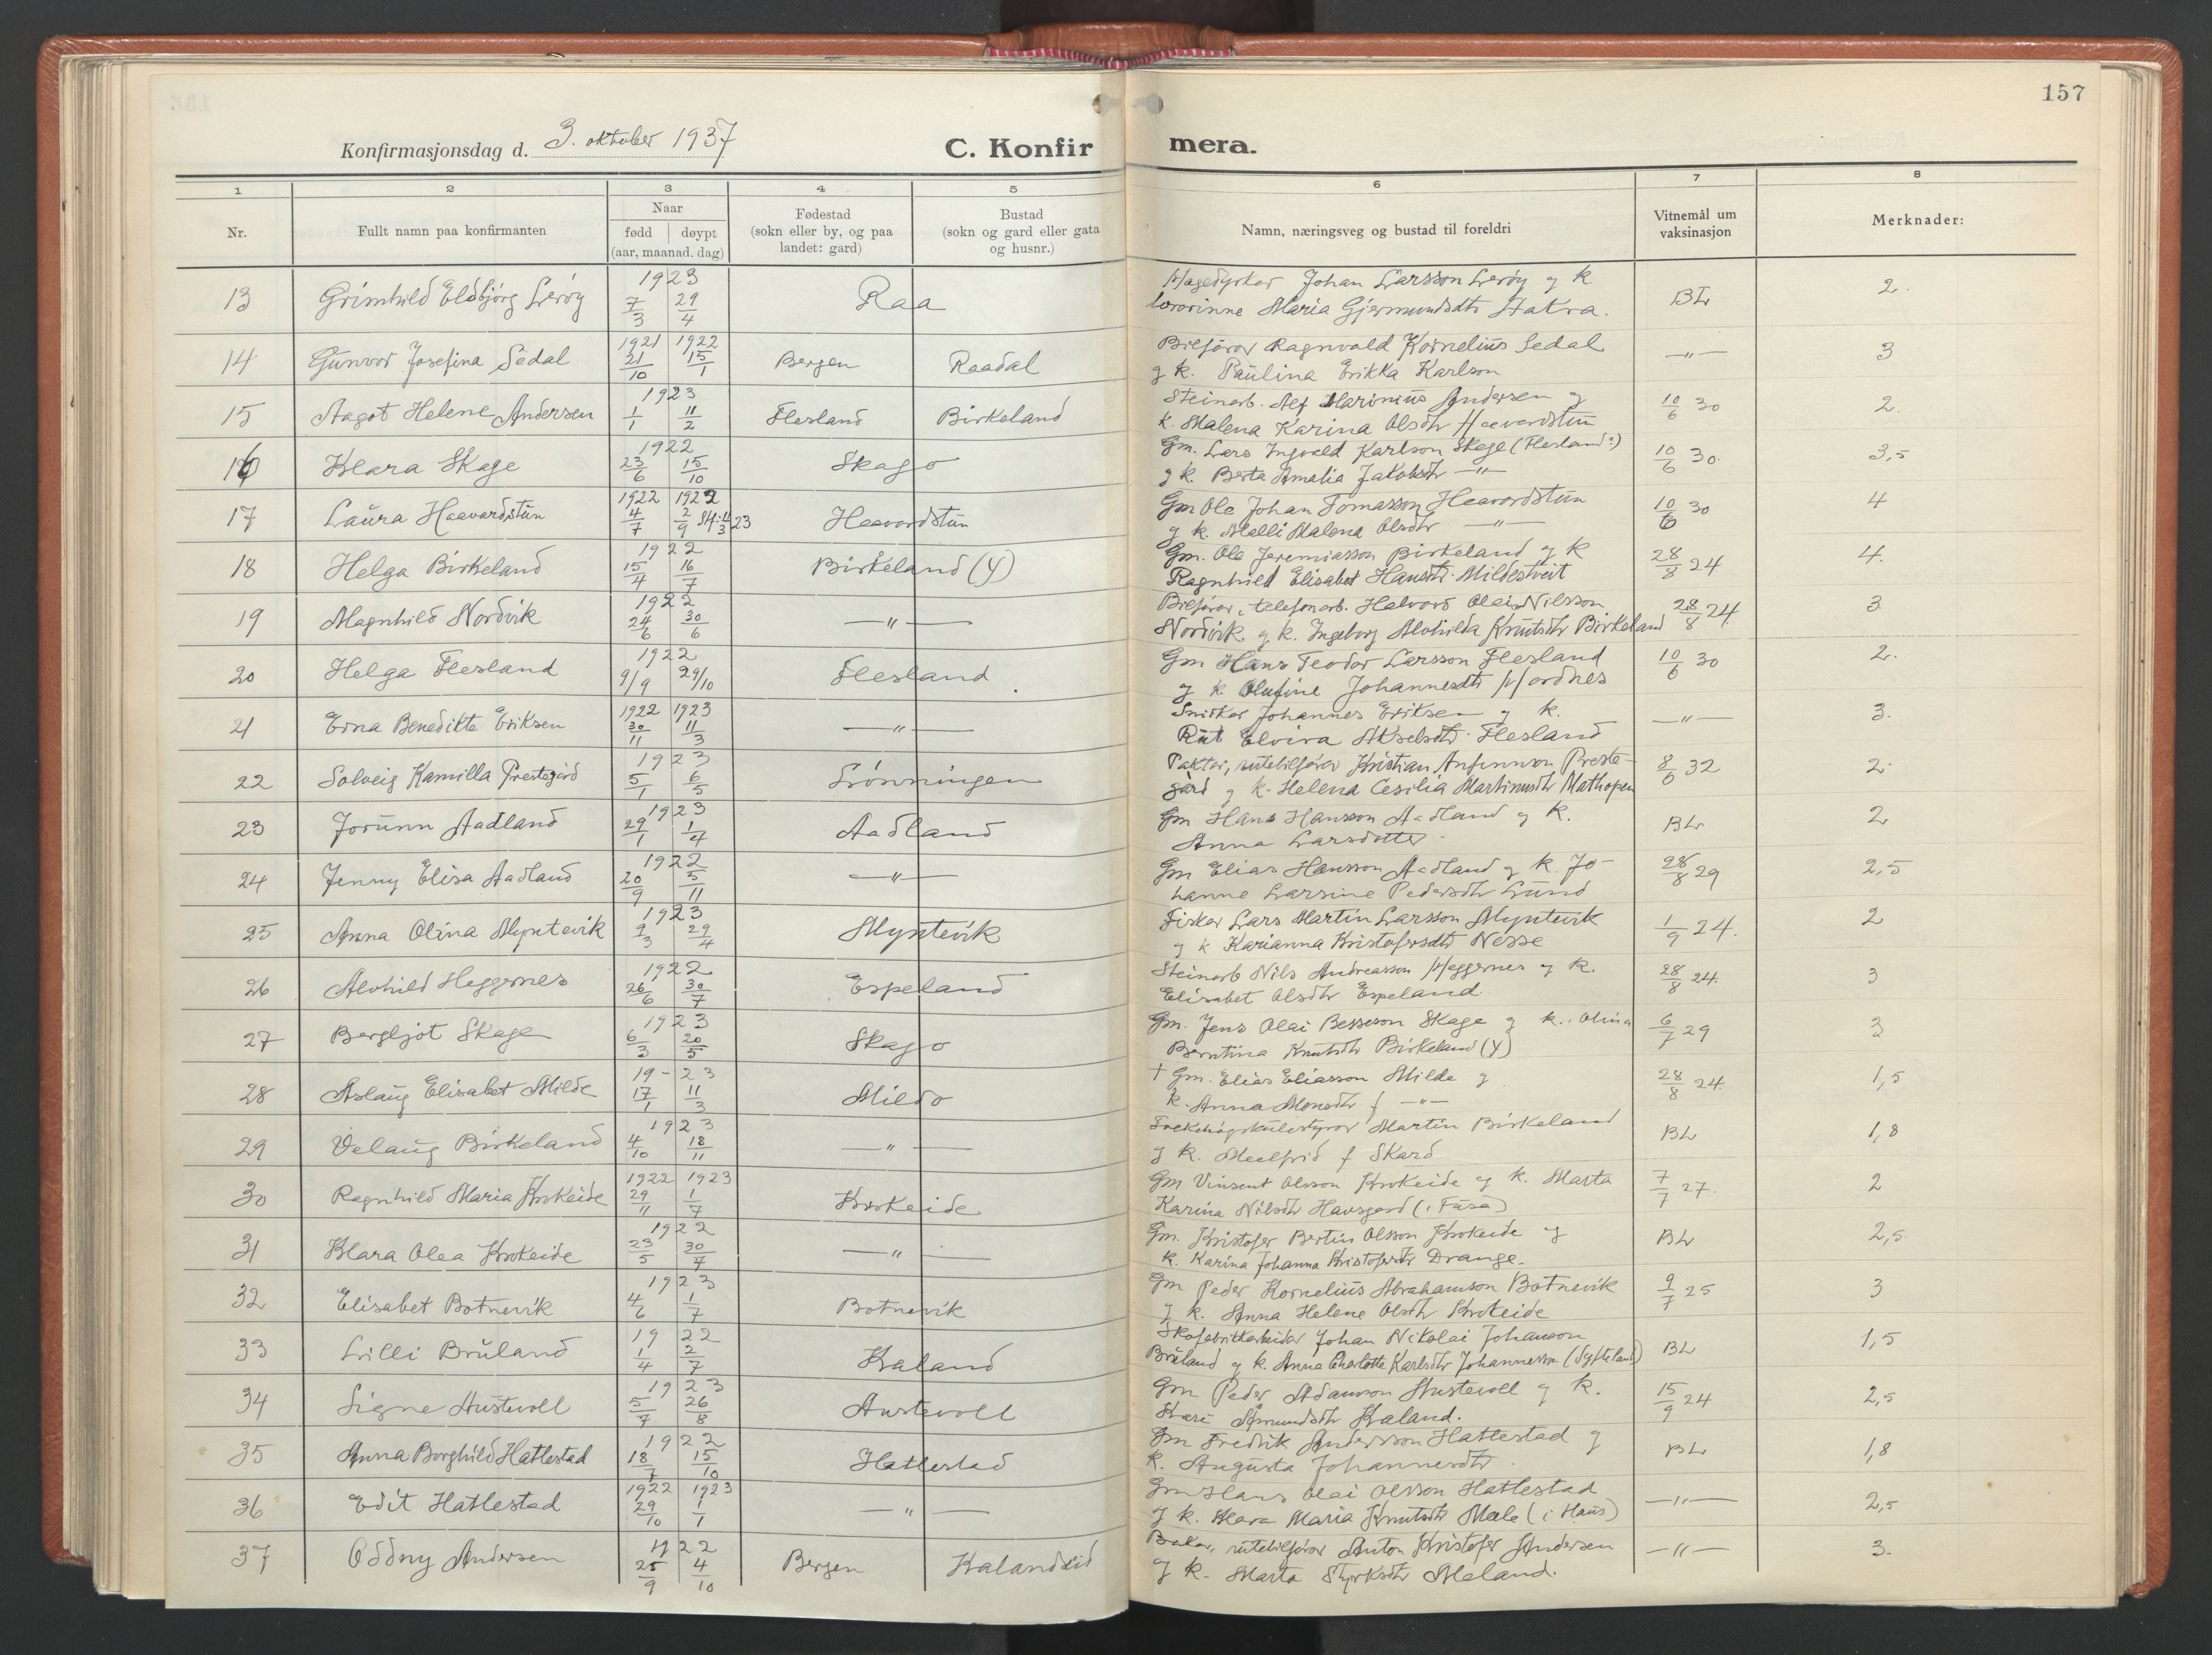 157
Konfirmasjonsdag d. 3. oktober 1937
C. Konfirmera.
1 2 3 4 5 6 7 8
Nr.
Fullt namn paa konfirmanten
Naar
fødd døypt
(aar, maanad. dag)
Fødestad
(sokn eller by, og paa
landet: gard)
Bustad
(sokn og gard eller gata
og husnr.)
Namn, næringsveg og bustad til foreldri
Vitnemål um
vaksinasjon
Merknader:
13 Grimhild Eldbjørg Lerøy 1923 7/3 29/4 Raa Hagedyrkar Johan Larsson Lerøy og k. BL 2.
lærarinne Maria Gjermundsdtr Aakra.
14 Gunvor Josefina Sedal 1921 21/10 1922 15/1 Bergen Raadal Bilførar Ragnvald Kornelius Sedal —"— 3
og k. Paulina Erikka Karlson
15 Aagot Helene Andersen 1923 1/1 11/2 Flesland Birkeland Steinarb. Alf Marinius Andersen og 10/6 30 2.
k. Malena Karina Olsdtr Haavardstun
16 Klara Skage 1922 23/6 15/10 Skage Gm. Lars Ingvald Karlson Skage (Flesland?) 10/6 30. 3,5
og k. Berta Amalia Jakobsdtr —"—
17 Laura Haavardstun 1922 4/7 1922 2/9 St. 4/3 23 Haavardstun Gm Ole Johan Tomasson Haavardstun 10/6 30 4
og k. Malli Malena Olsdtr —"—
18 Helga Birkeland 1922 15/4 16/7 Birkeland (Y) Gm. Ole Jeremiasson Birkeland og k 28/8 24 4.
Ragnhild Elisabet Hansdtr. Mildestveit
19 Magnhild Nordvik 1922 24/6 30/6 —"— Bilførar, telefonarb. Halvard Olai Nilsson 28/8 24 3
Nordvik og k. Ingeborg Alvhilda Knutsdtr Birkeland
20 Helga Flesland 1922 9/9 29/10 Flesland Gm Hans Teodor Larsson Flesland 10/6 30 2.
og k. Olufine Johannesdtr Hordnes
21 Erna Benedikte Eriksen 1922 30/11 1923 11/3 —"— Snikkar Johannes Eriksen og k. —"— 3.
Rut Elvira Akselsdtr. Flesland
22 Solveig Kamilla Prestegård 1923 5/1 6/5 Lønningen Paktar, rutebilførar Kristian Anfinnson Preste- 8/6 32 2.
gård og k. Helena Cesilia Martinusdtr Mathopen
23 Jorunn Aadland 1923 29/1 1/4 Aadland Gm Hans Hansson Aadland og k. BL 2
Anna Larsdotter
24 Jenny Elisa Aadland 1922 20/9 5/11 —"— Gm Elias Hansson Aadland og k. Jo- 28/8 29 2,5
hanne Larsine Pedersdtr Lund
25 Anna Olina Myntevik 1923 9/3 29/4 Myntevik Fiskar Lars Martin Larsson Myntevik 1/9 24. 2
og k Karianna Kristofersdtr Nesse
26 Alvhild Heggernes 1922 26/6 30/7 Espeland Steinarb Nils Andreasson Heggernes og k. 28/8 24. 3
Elisabet Olsdtr Espeland.
27 Bergljot Skage 1923 6/3 20/5 Skage Gm. Jens Olai Besseson Skage og k. Olina 6/7 29 3
Berntina Knutsdtr Birkeland (Y)
28 Aslaug Elisabet Milde 19-23 17/1 11/3 Milde † Gm. Elias Eliasson Milde og 28/8 24. 1,5
k. Anna Monsdtr f —"—
29 Velaug Birkeland 1923 4/10 18/11 —"— Folkehøgskulestyrar Martin Birkeland BL 1,8
og k. Maalfrid f Skard
30 Ragnhild Maria Krokeide 1922 29/11 1923 1/7 Krokeide Gm Vinsent Olsson Krokeide og k. Marta 7/7 27. 2
Karina Nilsdtr Havsgard (i Fusa)
31 Klara Olea Krokeide 1922 23/5 30/7 —"— Gm. Kristofer Bertin Olsson Krokeide og BL 2,5.
k. Karina Johanna Kristofersdtr Drange.
32 Elisabet Botnevik 1923 4/6 1/7 Botnevik Gm Peder Kornelius Abrahamson Botnevik 9/7 25 3
og k. Anna Helene Olsdtr Krokeide
33 Lilli Bruland 1922 1/4 2/7 Kaland Skofabrikkarbeidar Johan Nikolai Johanson BL 1,5
Bruland og k. Anna Charlotte Karlsdtr Johannessen (Syfteland)
34 Signe Austevoll 1923 5/7 26/8 Austevoll Gm Peder Adamson Austevoll og k. 15/9 24 2,5
Kari Åmundsdtr Kaland.
35 Anna Borghild Hatlestad 1922 18/7 15/10 Hatlestad Gm Fredrik Andersson Hatlestad og BL 1,8
k. Augusta Johannesdtr.
36 Edit Hatlestad 1922 29/10 1923 1/1 —"— Gm Hans Olai Olsson Hatlestad —"— 2,5
og k. Klara Maria Knutsdtr Mæle (i Haus)
37 Oddny Andersen 1922 25/9 4/10 Bergen Kalandseid Bakar, rutebilførar Anton Kristofer Andersen —"— 3.
og k. Marta Styrksdtr Meland.